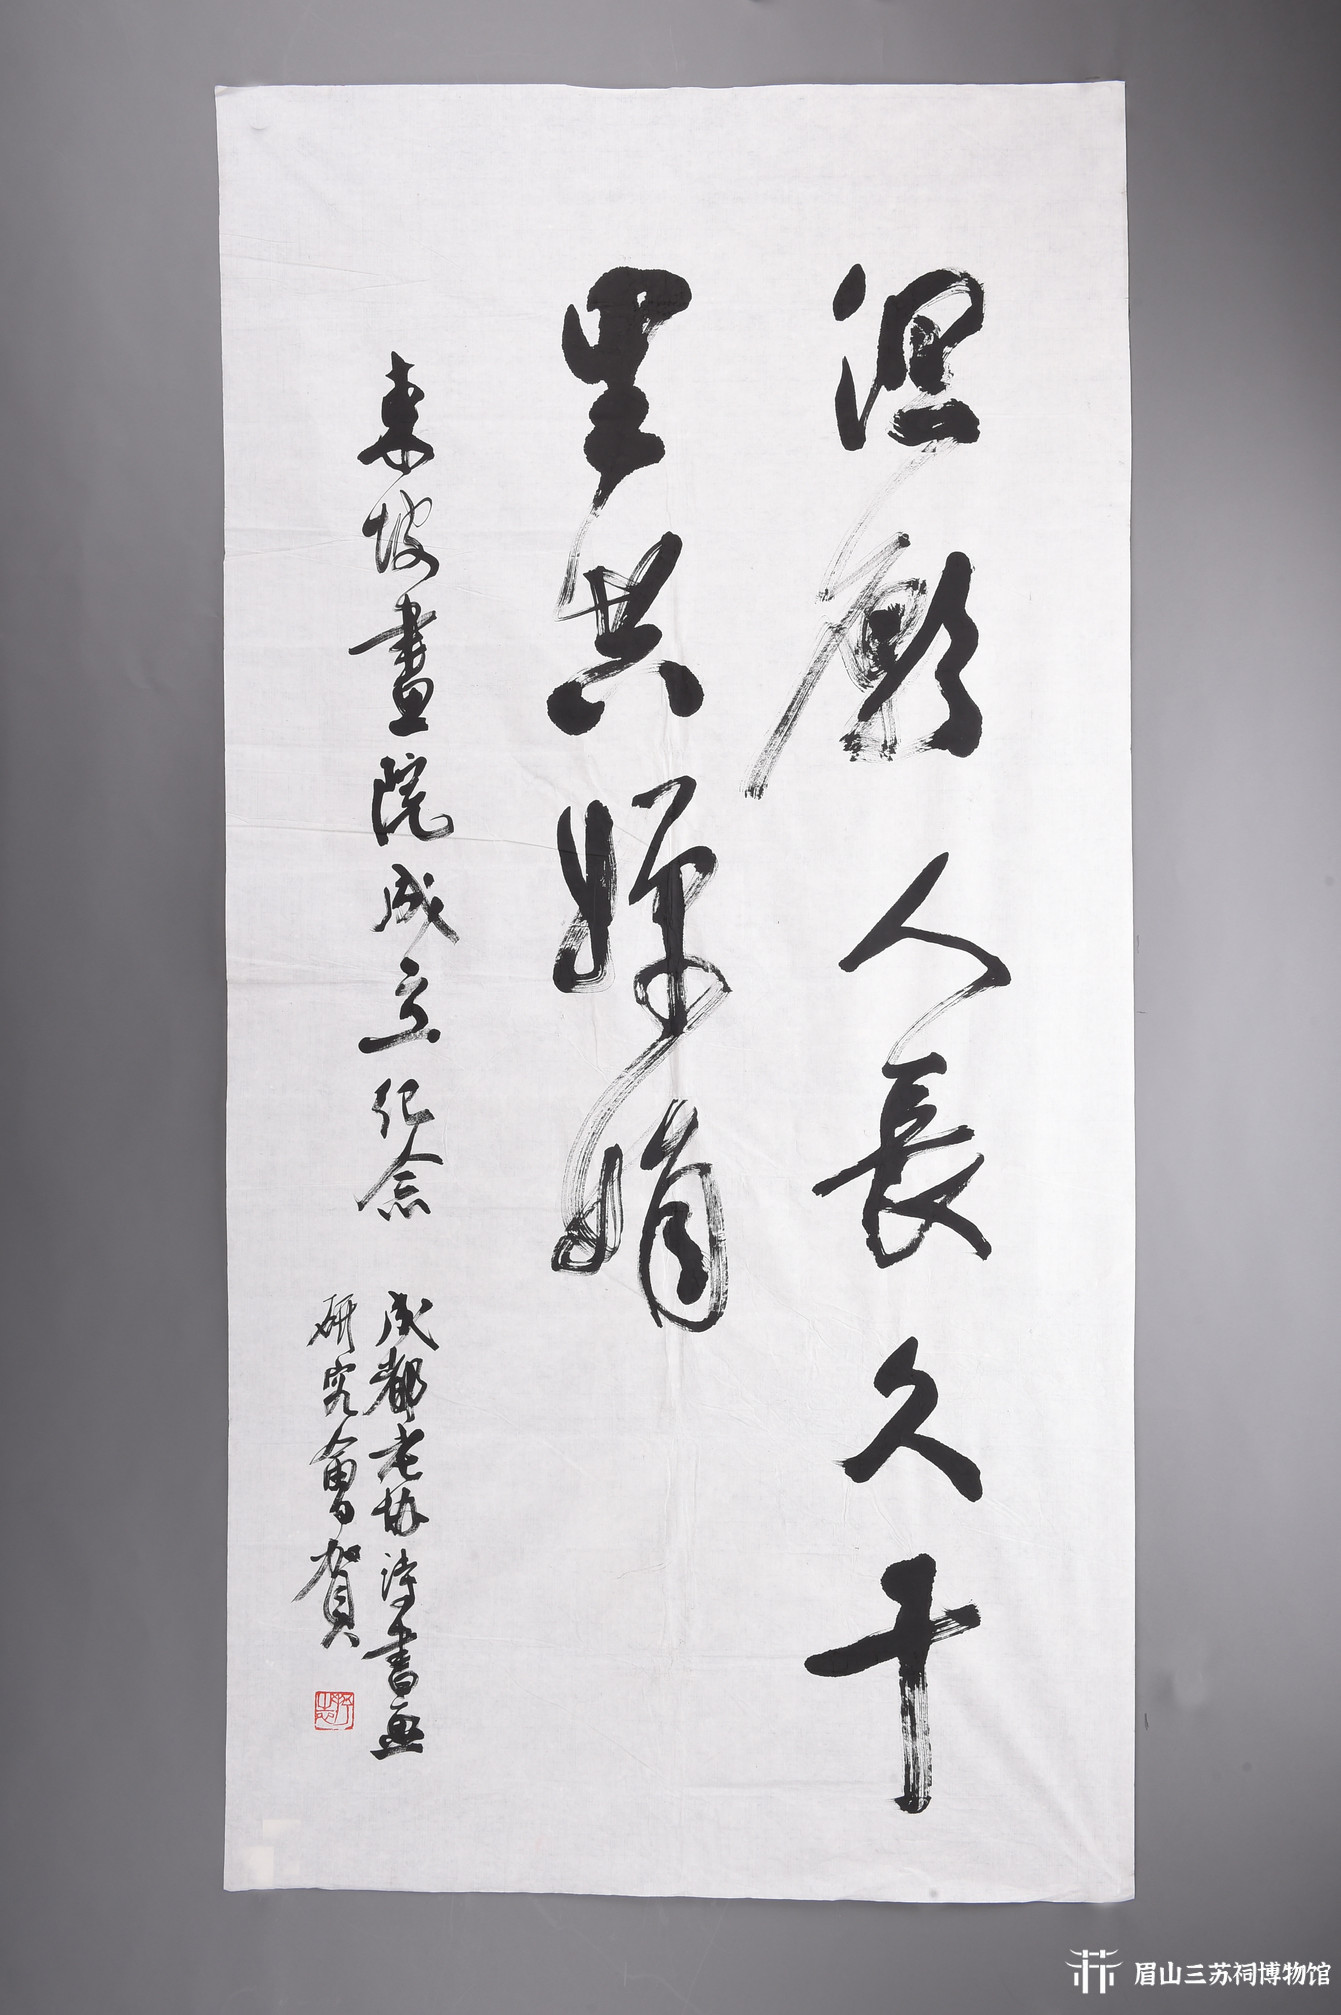 但願人長久千
里共嬋娟
东坡畫院成立纪念
成都老协诗書画
研究會賀
眉山三苏祠博物馆